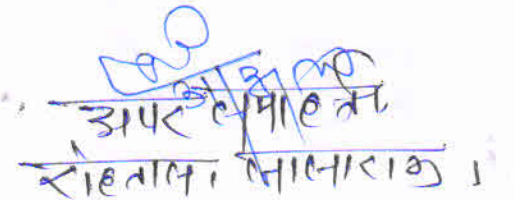 अपर समाहर्ता,
रोहतास, सासाराम ।